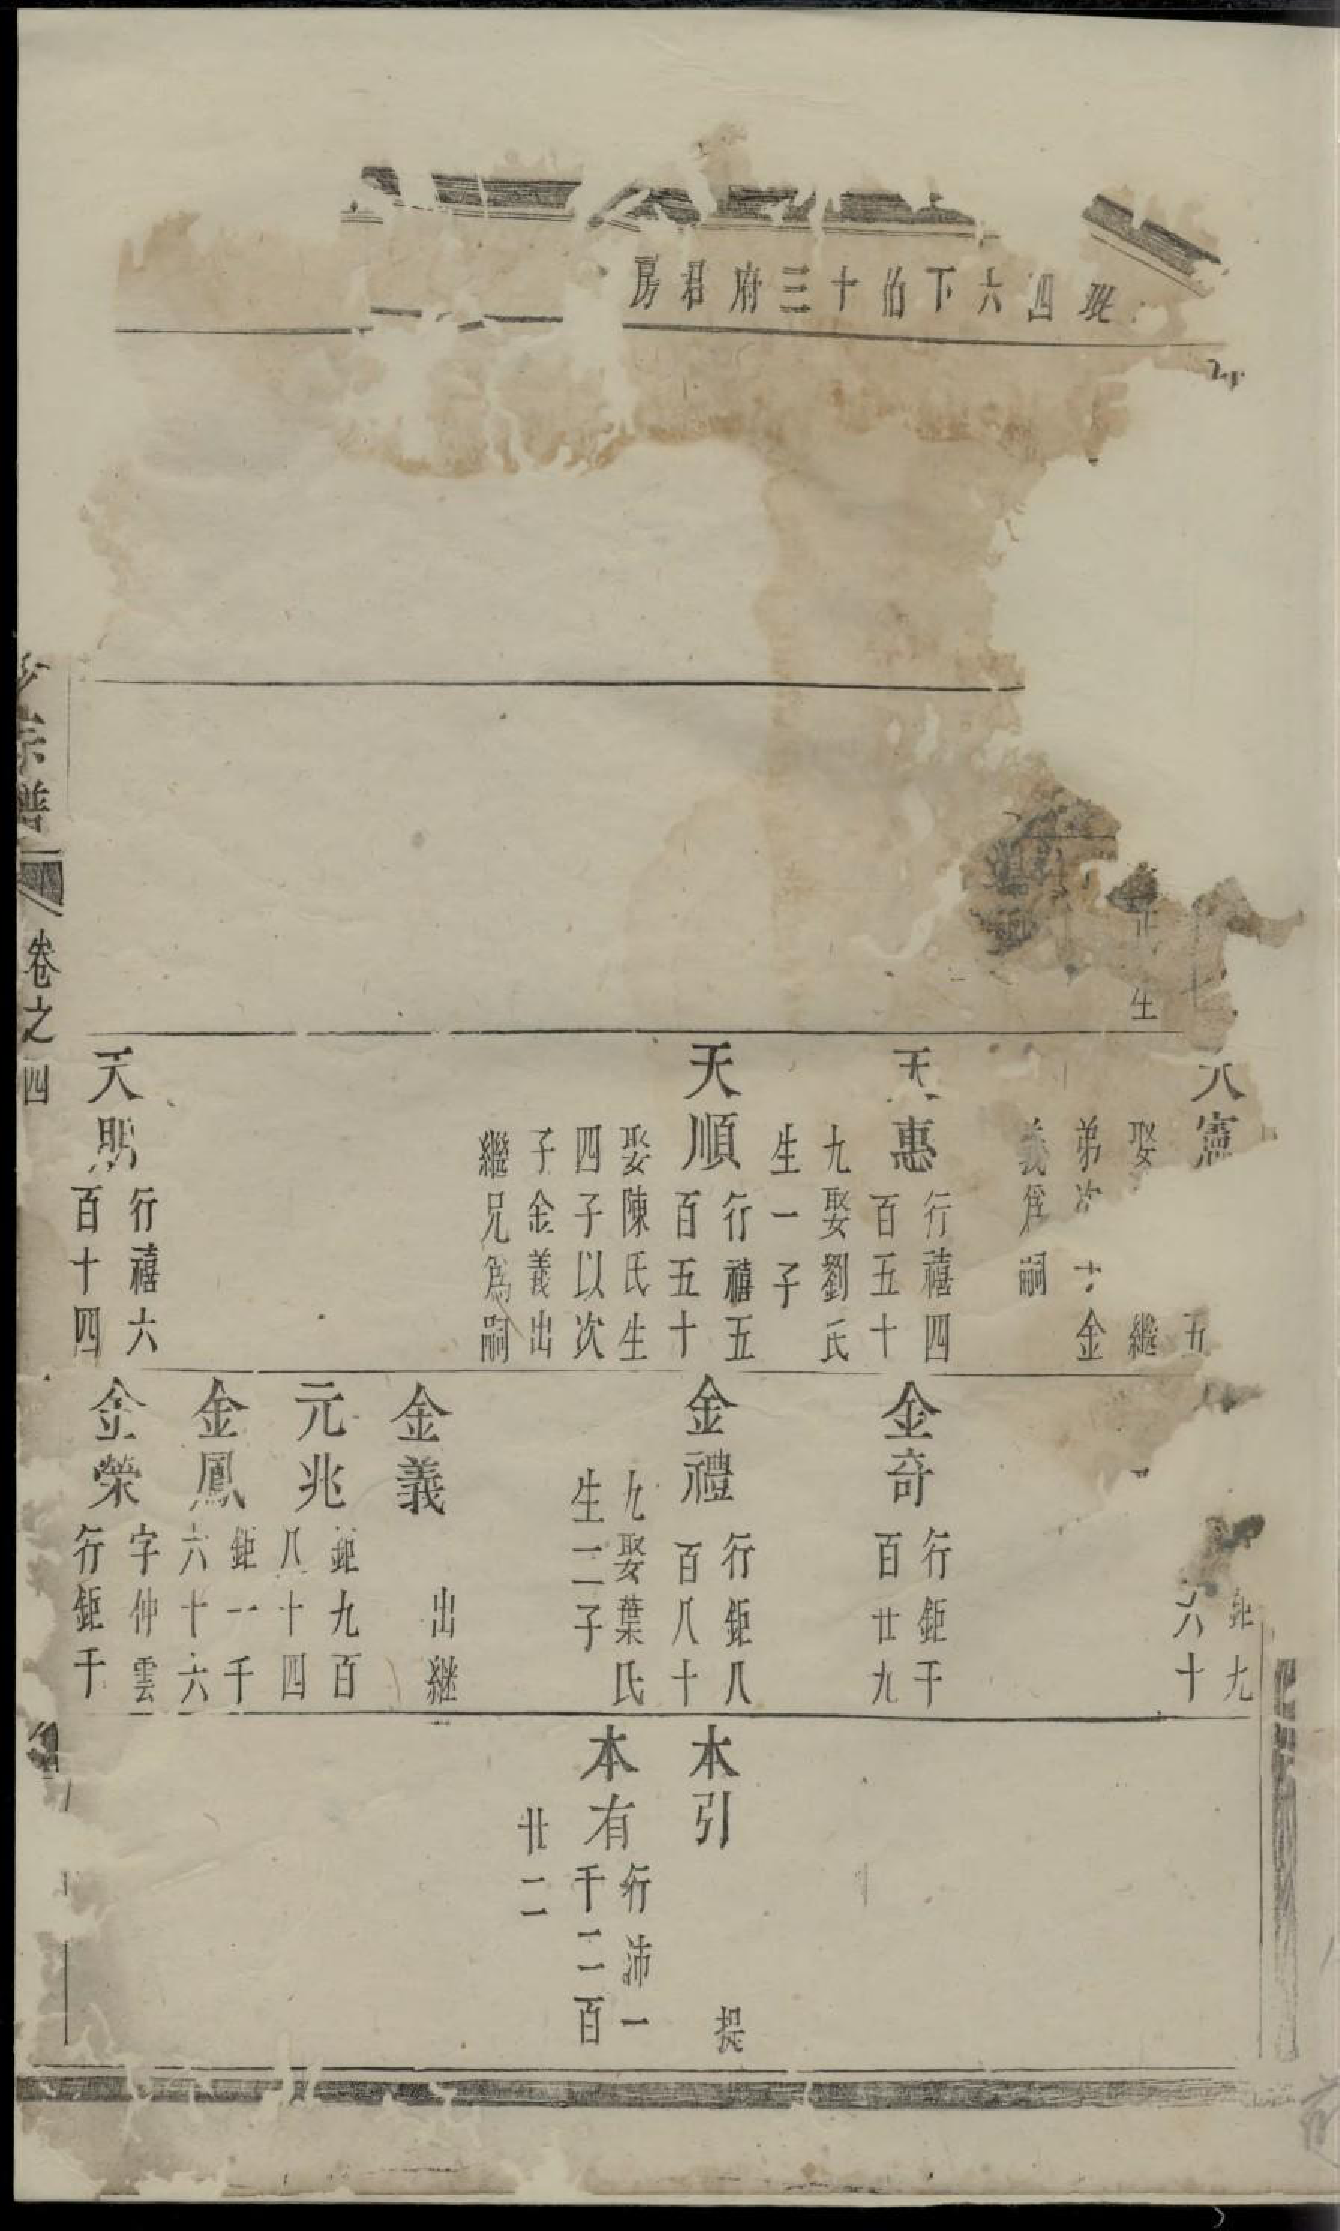 四六下伯十三府君房
正
生
天憲
五
娶
繼
弟次
金
義爲嗣
天惠
行禧四
百五十
九娶劉氏
生一子
天順
行禧五
百五十
娶陳氏生
四子以次
子金義出
繼兄爲嗣
天
行禧六
百十四
鉅九
六十
金奇
行鉅千
百廿九
金禮
行鉅八
百八十
九娶葉氏
生二子
金義
出継
元兆
鉅九百
八十四
金鳳
鉅一千
六十六
金榮
字仲雲
行鉅千
木引
提
本有
行沛一
千二百
廿二
宗譜
卷之四